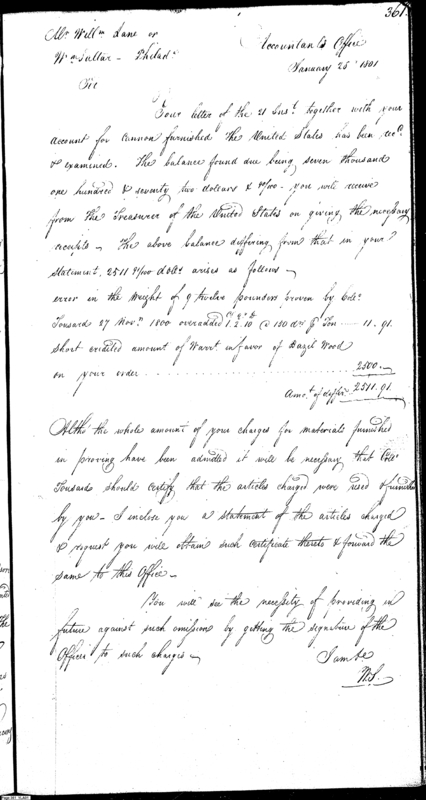 361.
Mr. Willm. Lane or
Wm                  - Philada.
Accountant's Office
January 25th 1801
Sir
Your letter of the 21 Inst. together with your
account for cannon furnished the United States has been recd.
& examined. The balance found due being seven thousand
one hundred & seventy two dollars & 40/100 - you will receive
from the Treasurer of the United States on giving the necessary
receipts - The above balance differing from that in your
statement, 2511 91/100 dolls. arises as follows -
error in the weight of 9 twelve pounders proven by Colo.
Tousard 27 Novr. 1800 overadded 1.2.10 @ 150 drs. ⅌ Ton 11.91
Short credited amount of Warrt. in favor of Bazil Wood
on your order 2500.
Amot. of differ. 2511.91
Altho' the whole amount of your charges for materials furnished
in proving have been admitted it will be necessary that Colo.
Tousard should certify that the articles charged were used & furnished
by you - I inclose you a statement of the articles charged
& request you will obtain such certificate thereto & forward the
same to this Office -
You will see the necessity of providing in
future against such omission by getting the signature of the
Officer to such charges -
I am &c
W.S.